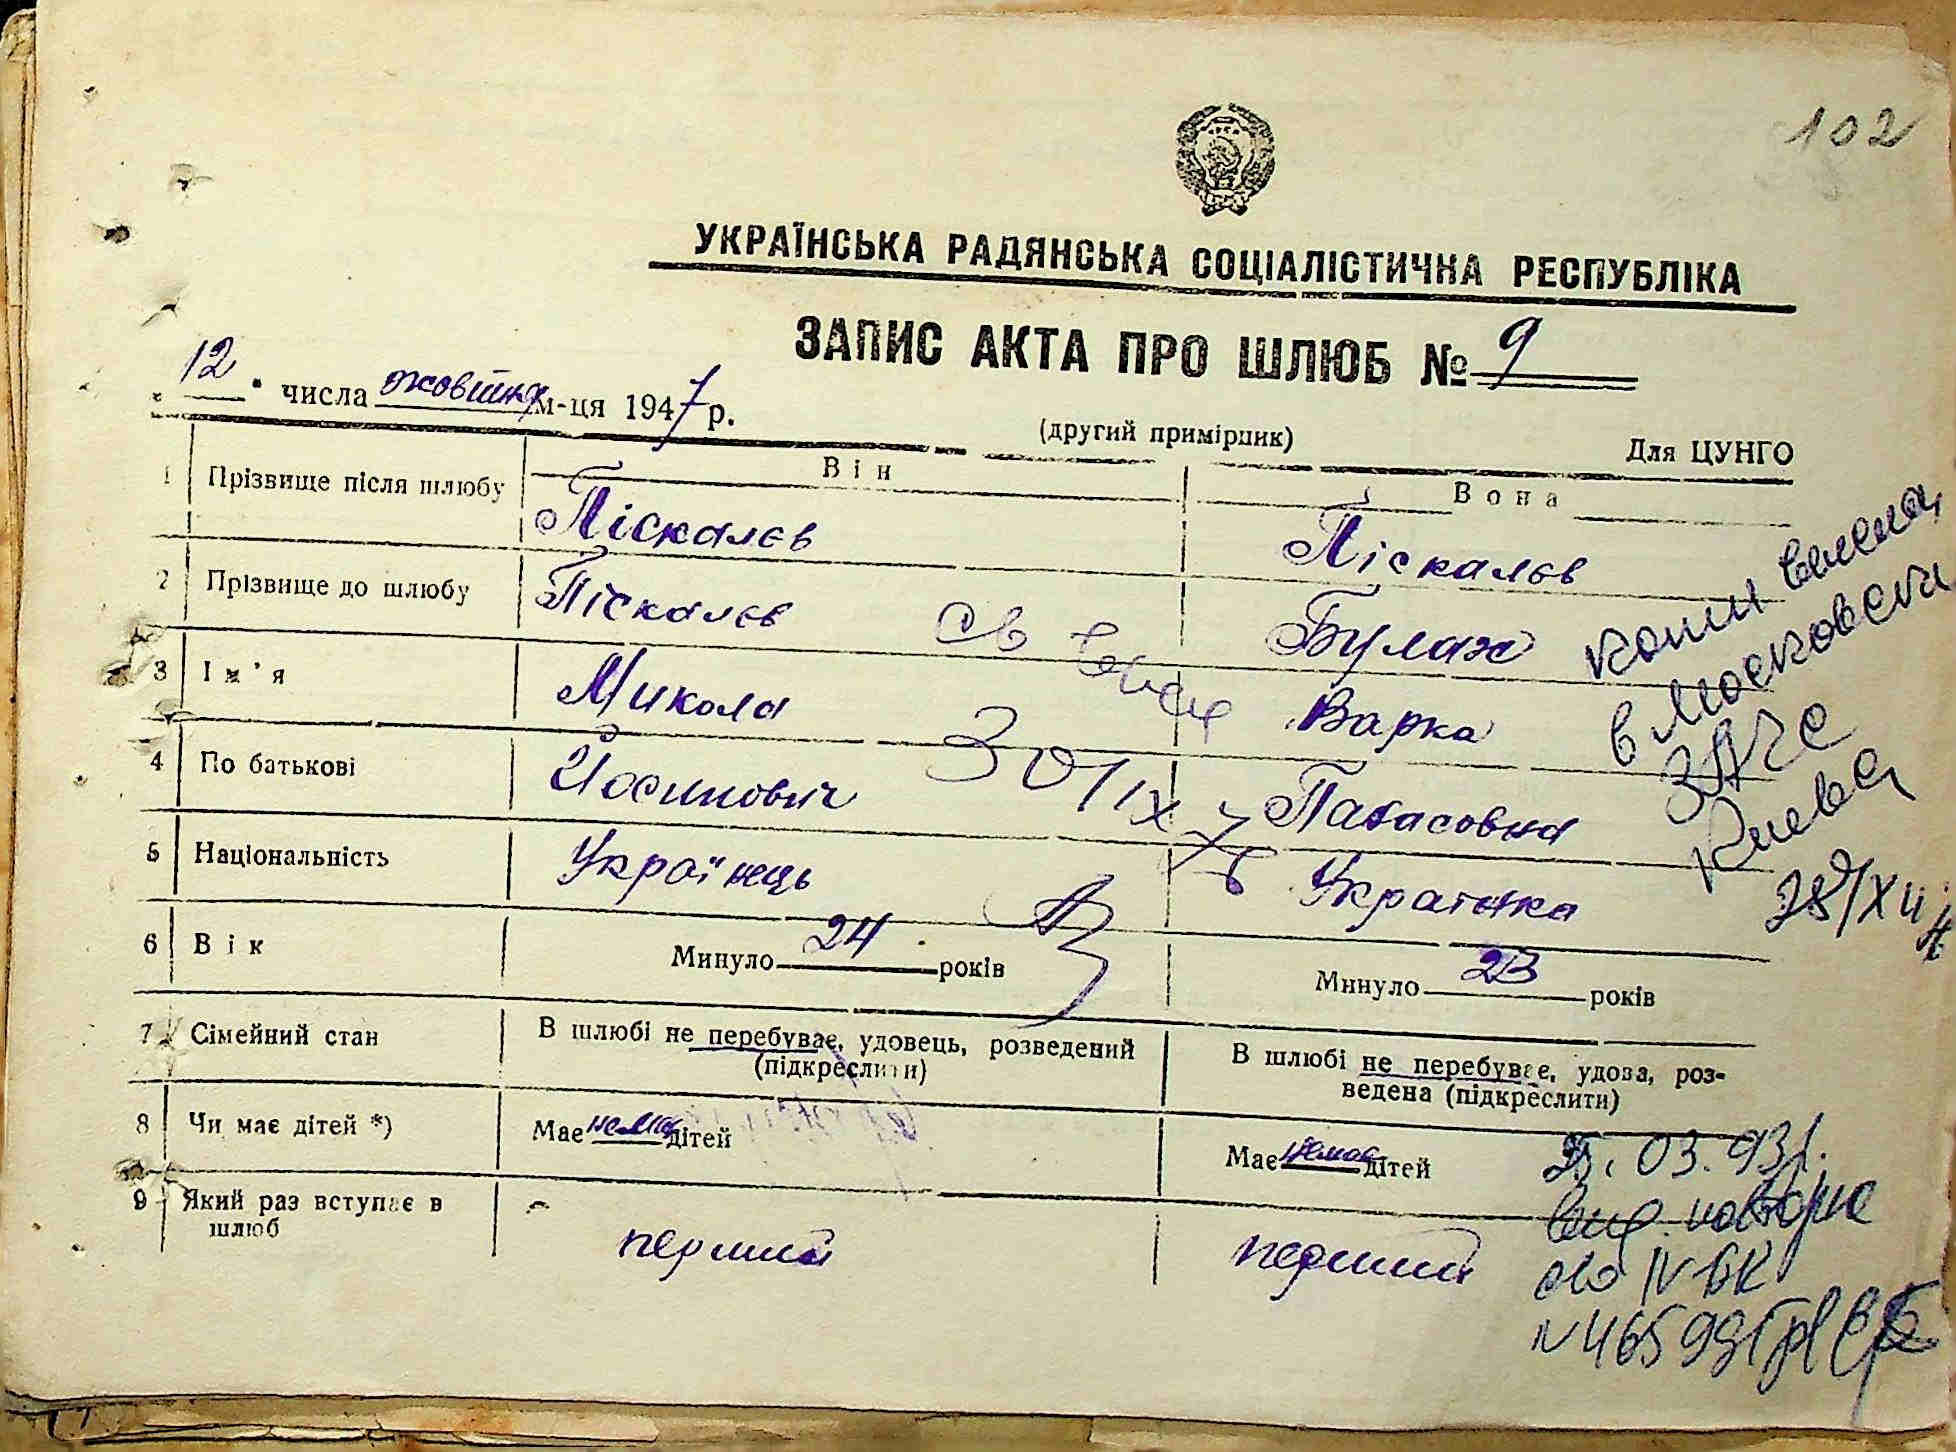 102
УКРАЇНСЬКА РАДЯНСЬКА СОЦІАЛІСТИЧНА РЕСПУБЛІКА
ЗАПИС АКТА ПРО ШЛЮБ № 9
"12" числа жовтня м-ця 1947 р.
(другий примірник) Для ЦУНГО
Він Вона
1 Прізвище після шлюбу Піскалєв Піскалєв
2 Прізвище до шлюбу Піскалєв Булах
3 Ім'я Микола Варка
4 По батькові Йосипович Панасовна
5 Національність Українець Українка
6 Вік Минуло 24 років Минуло 23 років
7 Сімейний стан В шлюбі не перебуває, удовець, розведений (підкреслити) В шлюбі не перебуває, удова, роз-
ведена (підкреслити)
8 Чи має дітей *) Має немає дітей Має немає дітей
9 Який раз вступає в шлюб перший перший
св
30/IX
копии
в Московский
ЗАГС
Киева
28/XII
25.03.93г.
повторне
св IV БК
N 465991